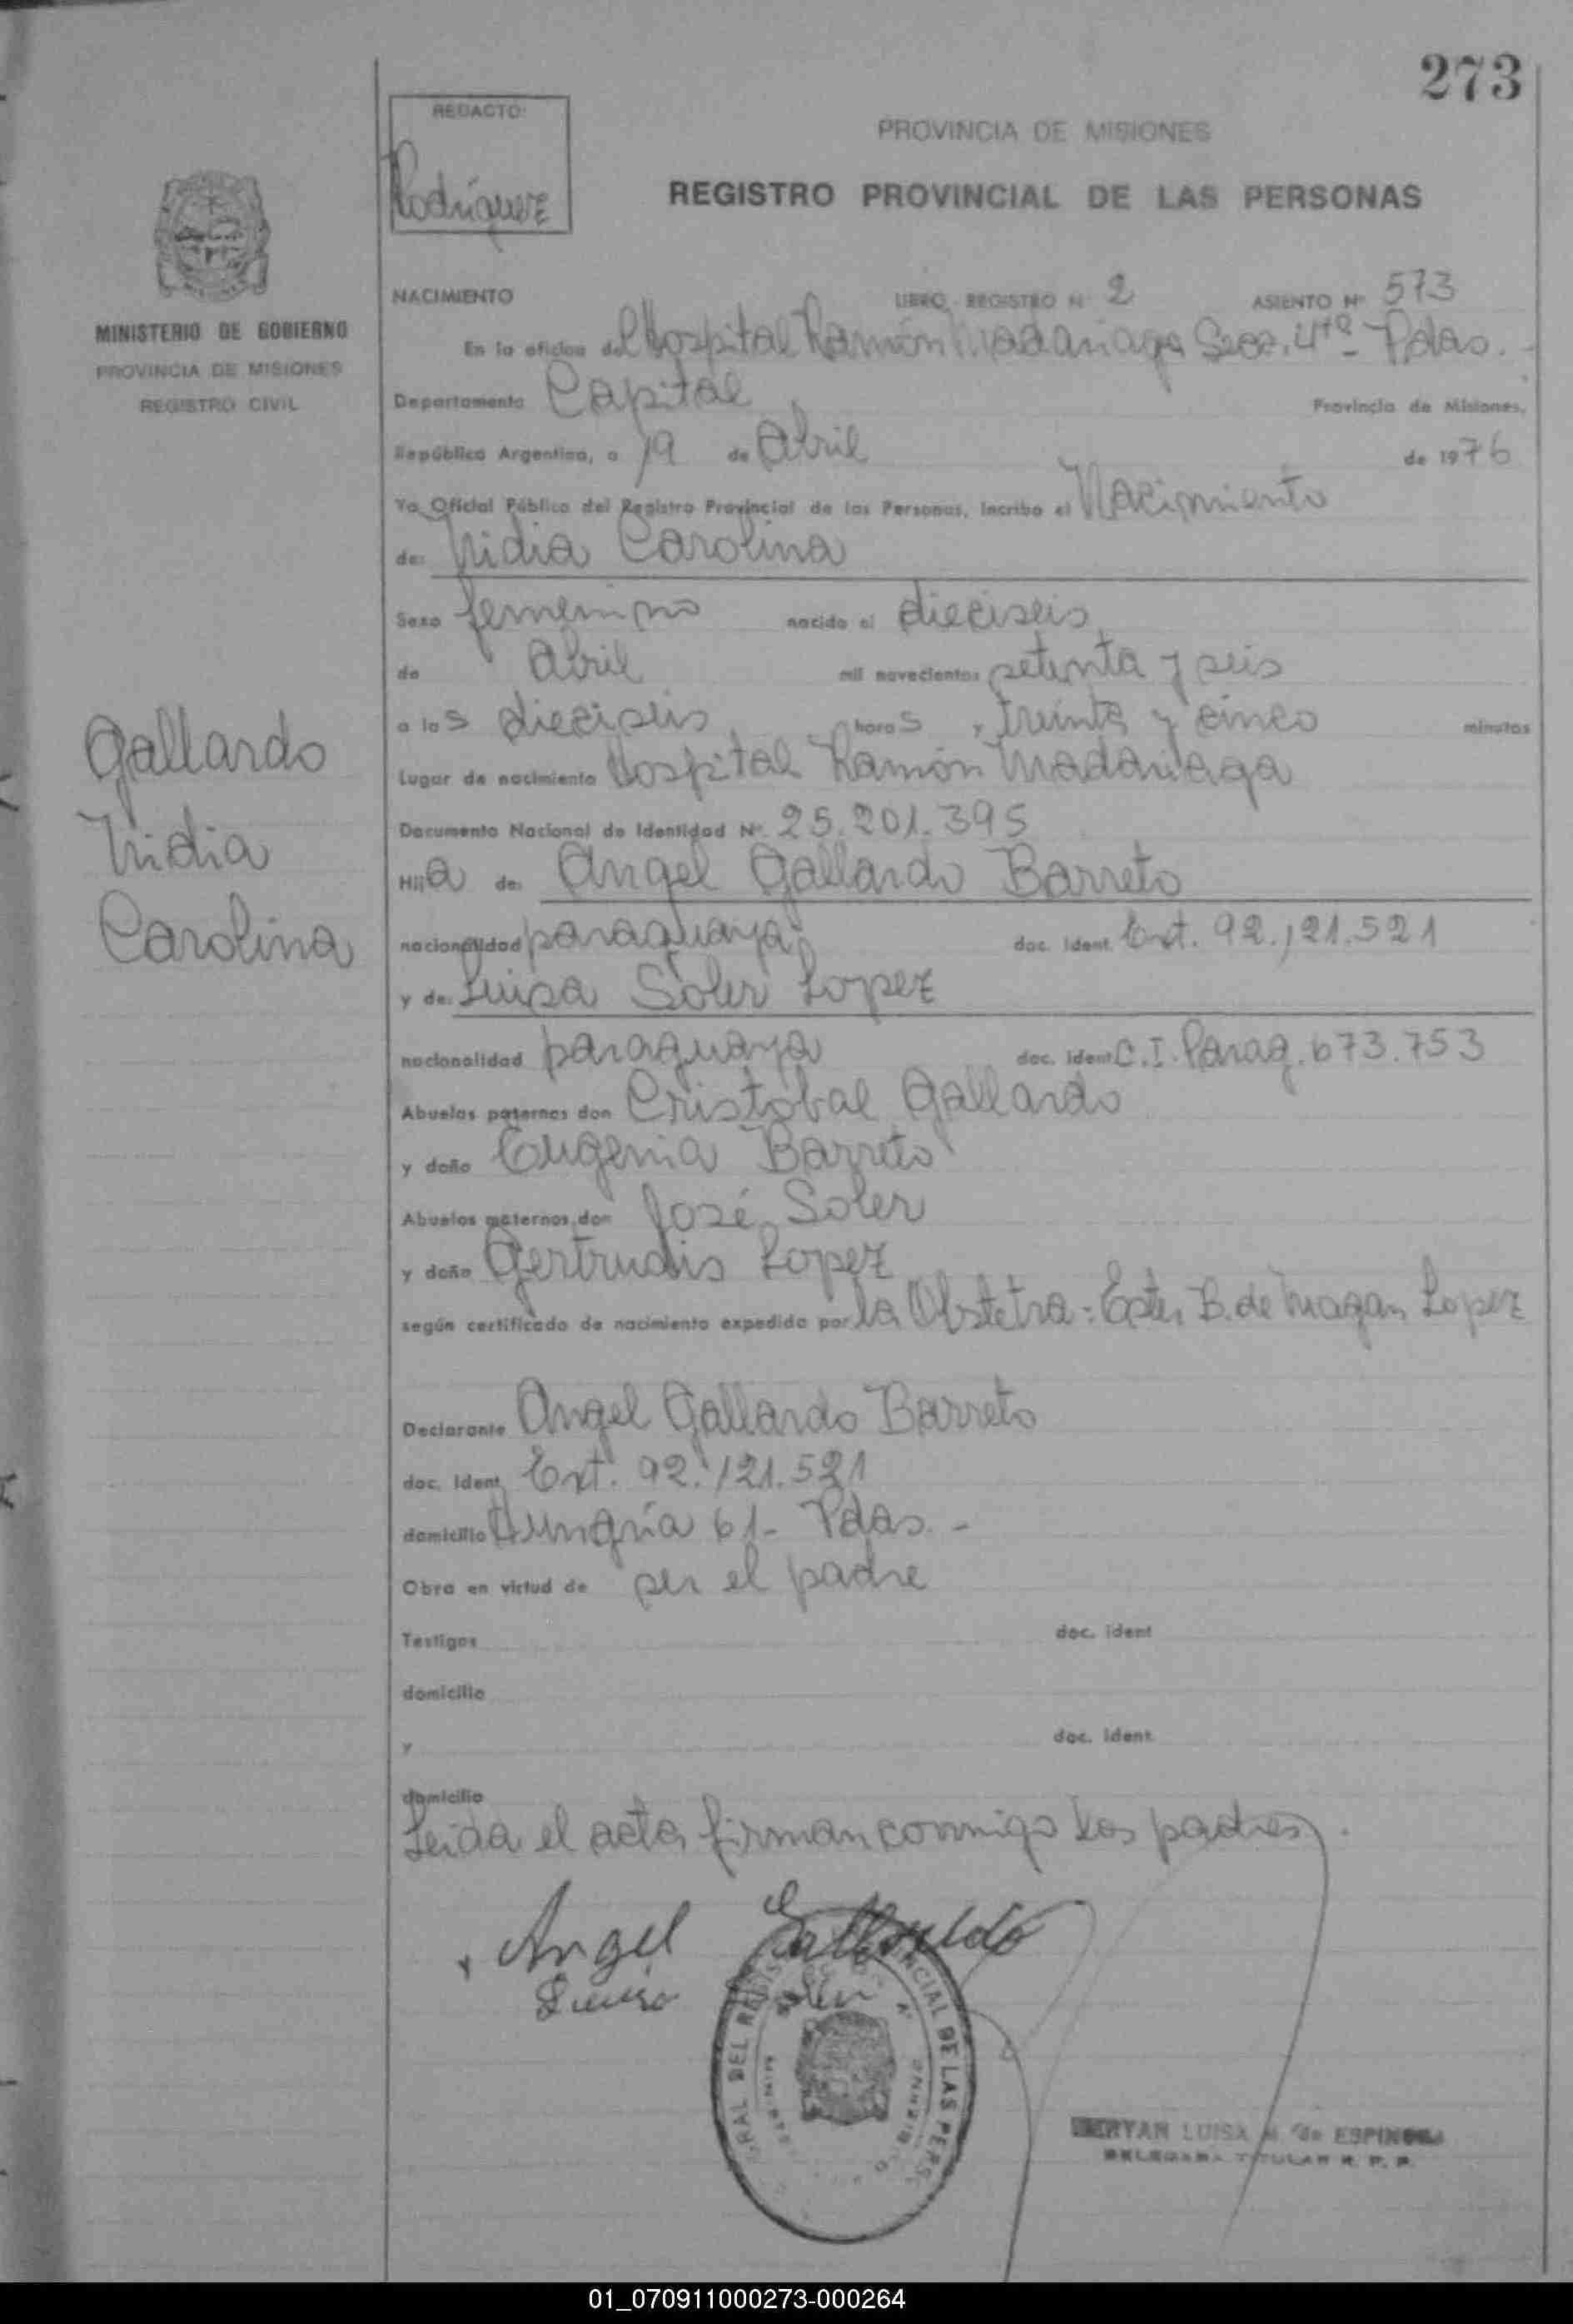 273
REDACTO:
Rodríguez
PROVINCIA DE MISIONES
REGISTRO PROVINCIAL DE LAS PERSONAS
MINISTERIO DE GOBIERNO
PROVINCIA DE MISIONES
REGISTRO CIVIL
NACIMIENTO LIBRO - REGISTRO Nº 2 ASIENTO Nº 573
En la oficina del Hospital Ramón Madariaga Secc. 4ta - Pdas. -
Departamento Capital Provincia de Misiones,
República Argentina, a 19 de Abril de 1976
Yo Oficial Público del Registro Provincial de las Personas, Incribo el Nacimiento
de: Nidia Carolina
Sexo femenino nacido el dieciseis
de Abril mil novecientos setenta y seis
a las dieciseis horas y treinta y cinco minutos
Lugar de nacimiento Hospital Ramón Madariaga
Documento Nacional de Identidad Nº 25.201.395
Hija de: Angel Gallardo Barreto
nacionalidad paraguaya doc. ident. Ext. 92.121.521
y de: Luisa Soler Lopez
nacionalidad paraguaya doc. ident C.I. Parag. 673.753
Abuelos paternos don Cristóbal Gallardo
y doña Eugenia Barreto
Abuelos maternos don José Soler
y doña Gertrudis Lopez
según certificado de nacimiento expedido por la Obstetra: Ester B. de Magan Lopez
Gallardo
Nidia
Carolina
Declarante Angel Gallardo Barreto
doc. Ident. Ext. 92.121.521
domicilio Hungría 61 - Pdas. -
Obra en virtud de ser el padre
Testigos doc. ident
domicilio
y doc. ident.
domicilio
Leida el acta firman conmigo los padres.
Angel Gallardo
Luisa Soler
RAL DEL REGISTRO PROVINCIAL DE LAS PERS
LUISA de ESPINOSA
DELEGADA TITULAR R. P. P.
01_070911000273-000264